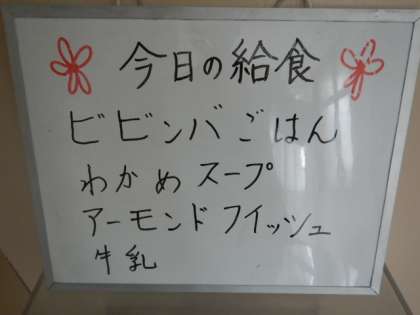 今日の給食
ビビンバごはん
わかめスープ
アーモンドフイッシュ
牛乳